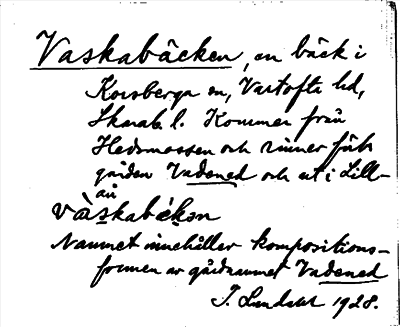 Vaskabäcken, en bäck i
Korsberga sn, Vartofta hd,
Skarab. l. Kommer från
Hedmossen och rinner förb
gården Vadened och ut i Lill-
ån
vàskabækən
Namnet innehåller kompositions-
formen av gårdnamnet Vadened
J. Lundahl 1928.